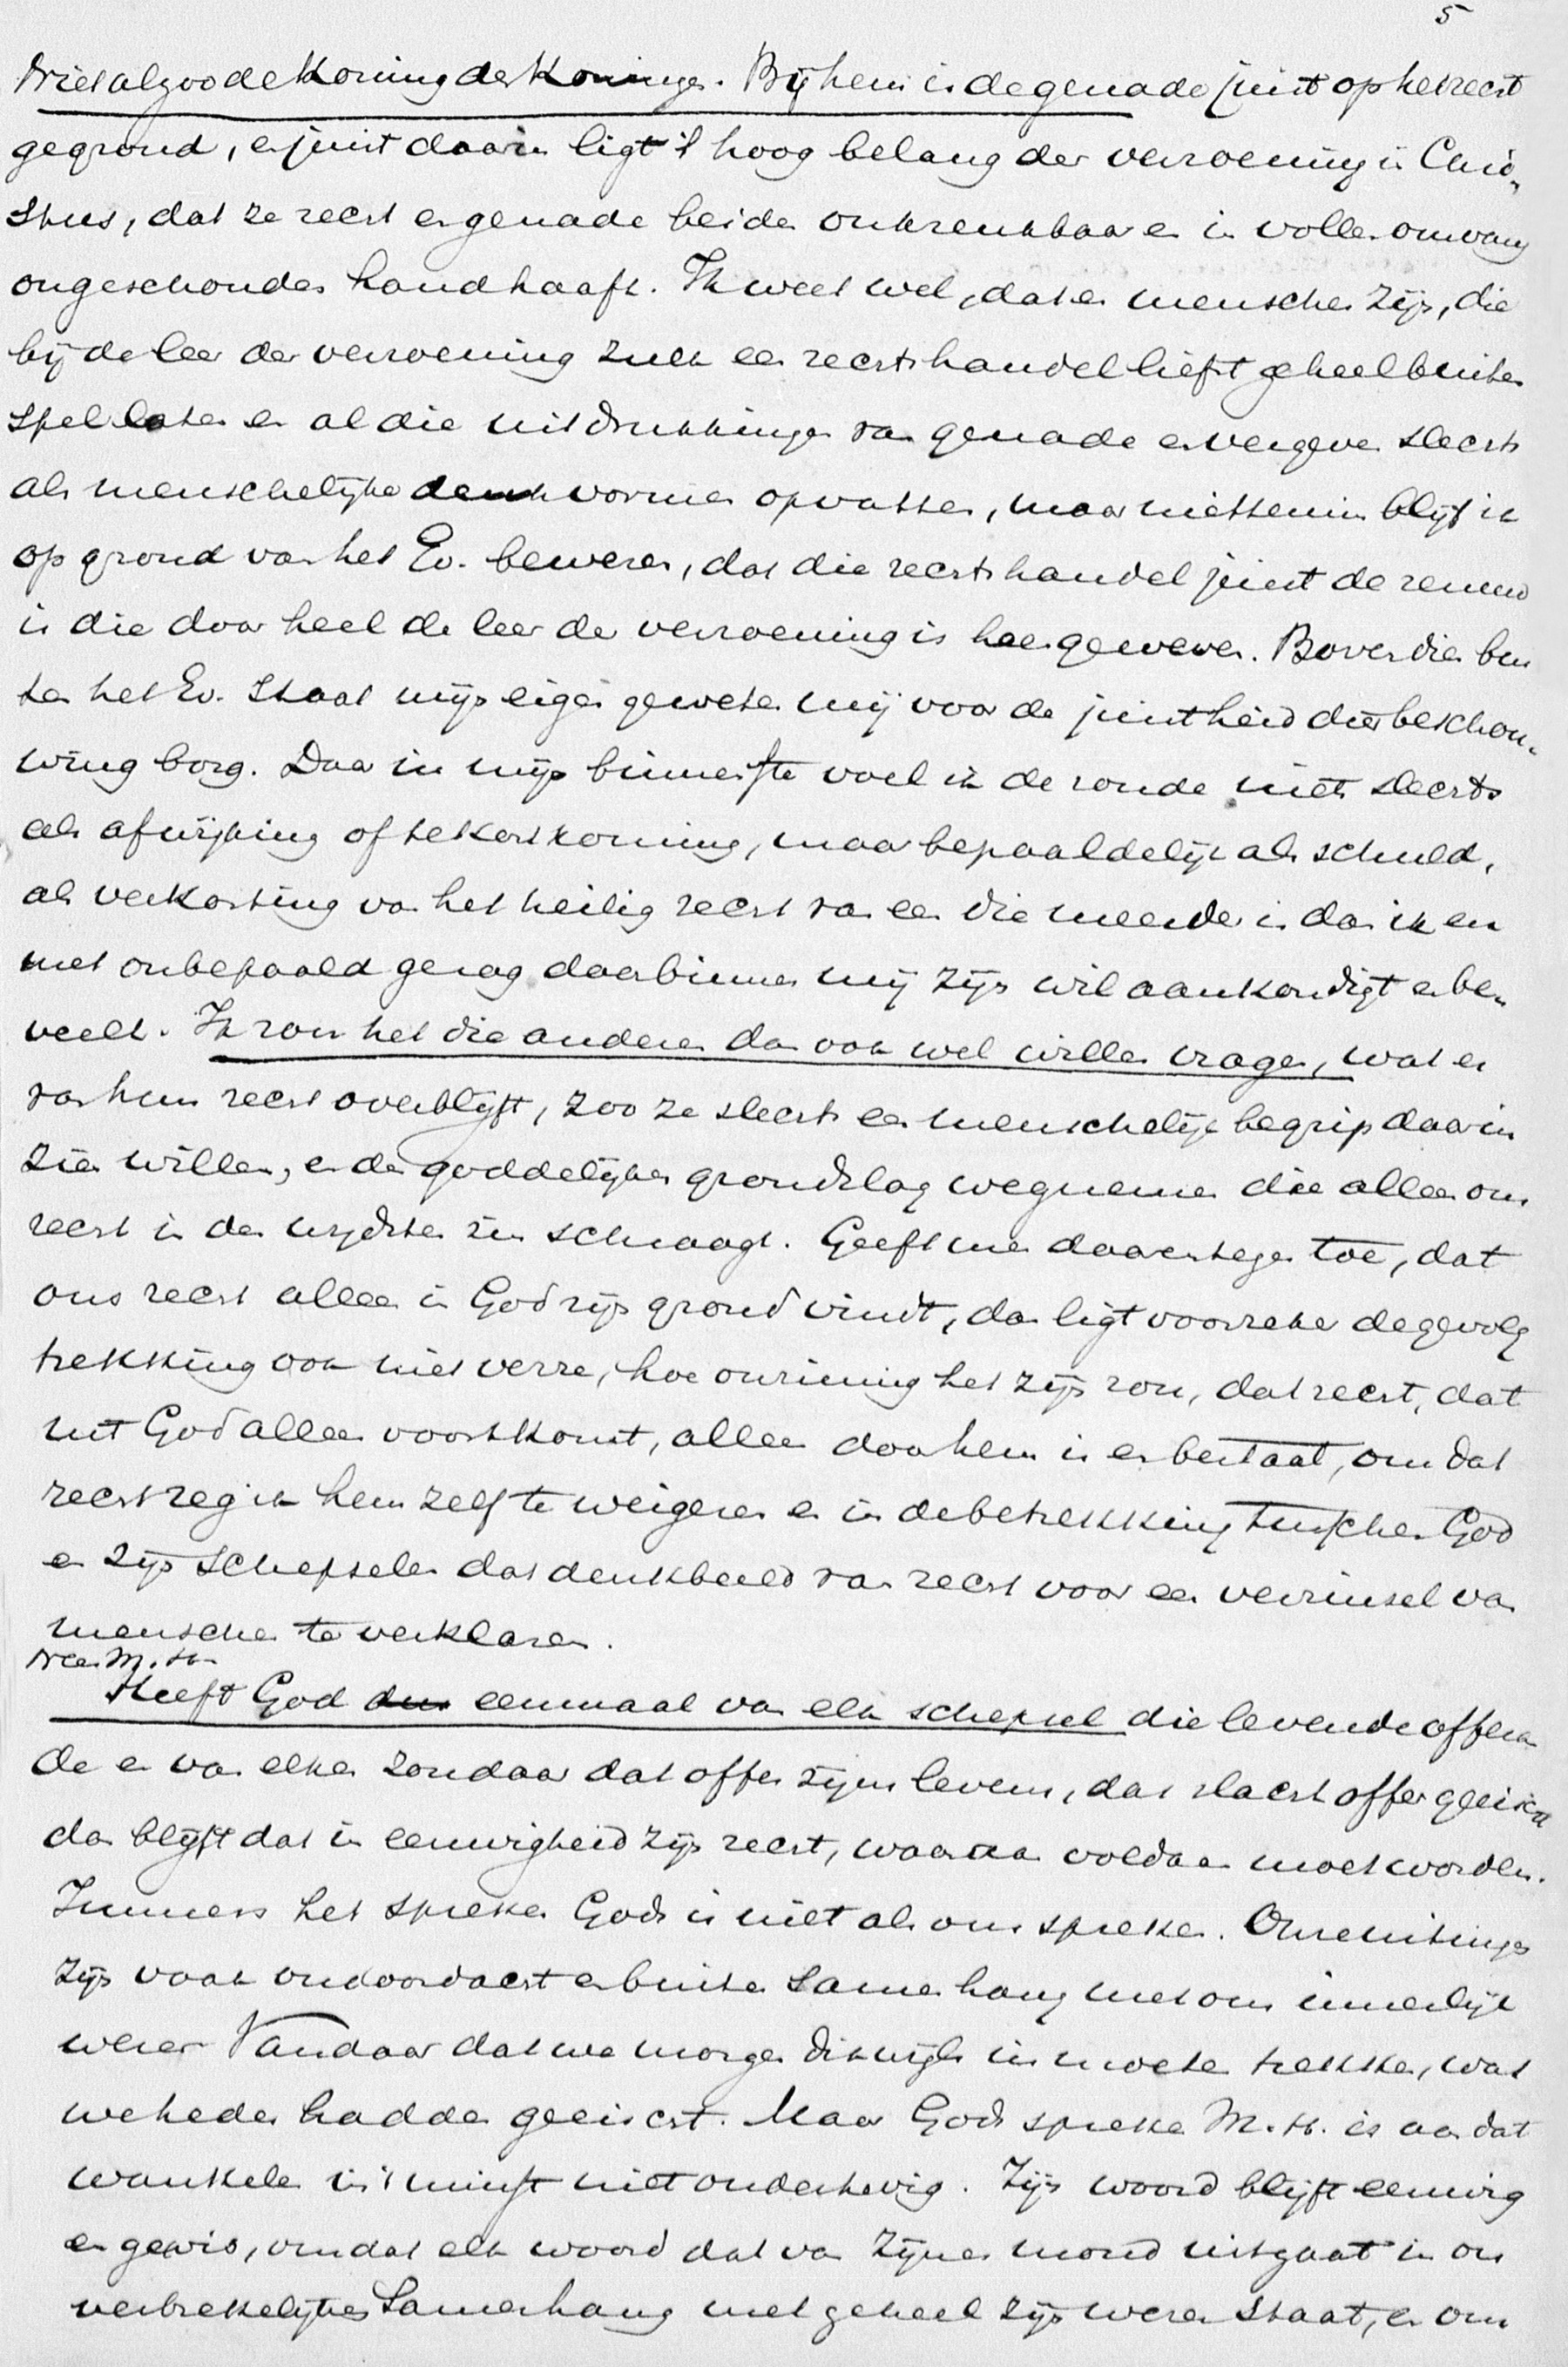 5
Niet alzoo de Koning der Koningen. Bij hem is de genade juist op het recht
gegrond, en juist daarin ligt 't hoog belang der verzoening in Chris-
stus, dat ze recht en genade beiden onkrenkbaar en in vollen omvang
ongeschonden handhaaft. Ik weet wel, dat er menschen zijn, die
bij de leer der verzoening zulk een rechtshandel liefst geheel buiten
spel laten en al die uitdrukkingen van genade en vergeven slechts
als menschelijke denkvormen opvatten, maar niettemin blijf ik
op grond van het Ev. beweren, dat die rechtshandel juist de zenuw
is die door heel de leer der verzoening is heengeweven. Bovendien bui
ten het Ev. staat mijn eigen geweten mij voor de juistheid dier beschou-
wing borg. Daar in mijn binnenste voel ik de zonde niet slechts
als afwijking of tekortkoming, maar bepaaldelijk als schuld,
als verkorting van het heilig recht van een die meerder is dan ik en
met onbepaald gezag daarbinnen mij zijn wil aankondigt en be-
veelt. Ik zou het die anderen dan ook wel willen vragen, wat er
van hun recht overblijft, zoo ze slechts een menschelijk begrip daarin
zien willen, en den goddelijken grondslag wegnemen die alleen ons
recht in den wijdsten zin schraagt. Geeft men daarentegen toe, dat
ons recht alleen in God zijn grond vindt, dan ligt voorzeker de gevolg
trekking ook niet verre, hoe onzinnig het zijn zou, dat recht, dat
uit God alleen voortkomt, alleen door hem is en bestaat, om dat
recht zeg ik hem zelf te weigeren en in de betrekking tusschen God
en zijn schepselen dat denkbeeld van recht voor een verzinsel van
menschen te verklaren.
Neen M. H.
Heeft God dus eenmaal van elk schepsel die levende offeran
de en van elken zondaar dat offer zijns levens, dat slachtoffer geëischt
dan blijft dat in eeuwigheid zijn recht, waaraan voldaan moet worden.
Immers het spreken Gods is niet als ons spreken. Onze uitingen
zijn vaak ondoordacht en buiten samenhang met ons innerlijk
wezen Vandaar dat we morgen dikwijls in moeten trekken, wat
we heden hadden geeischt. Maar Gods spreken M. H. is aan dat
wankelen in 't minst niet onderhevig. Zijn woord blijft eeuwig
en gewis, omdat elk woord dat van Zijnen mond uitgaat in on
verbrekelijken Samenhang met geheel zijn wezen staat, en om